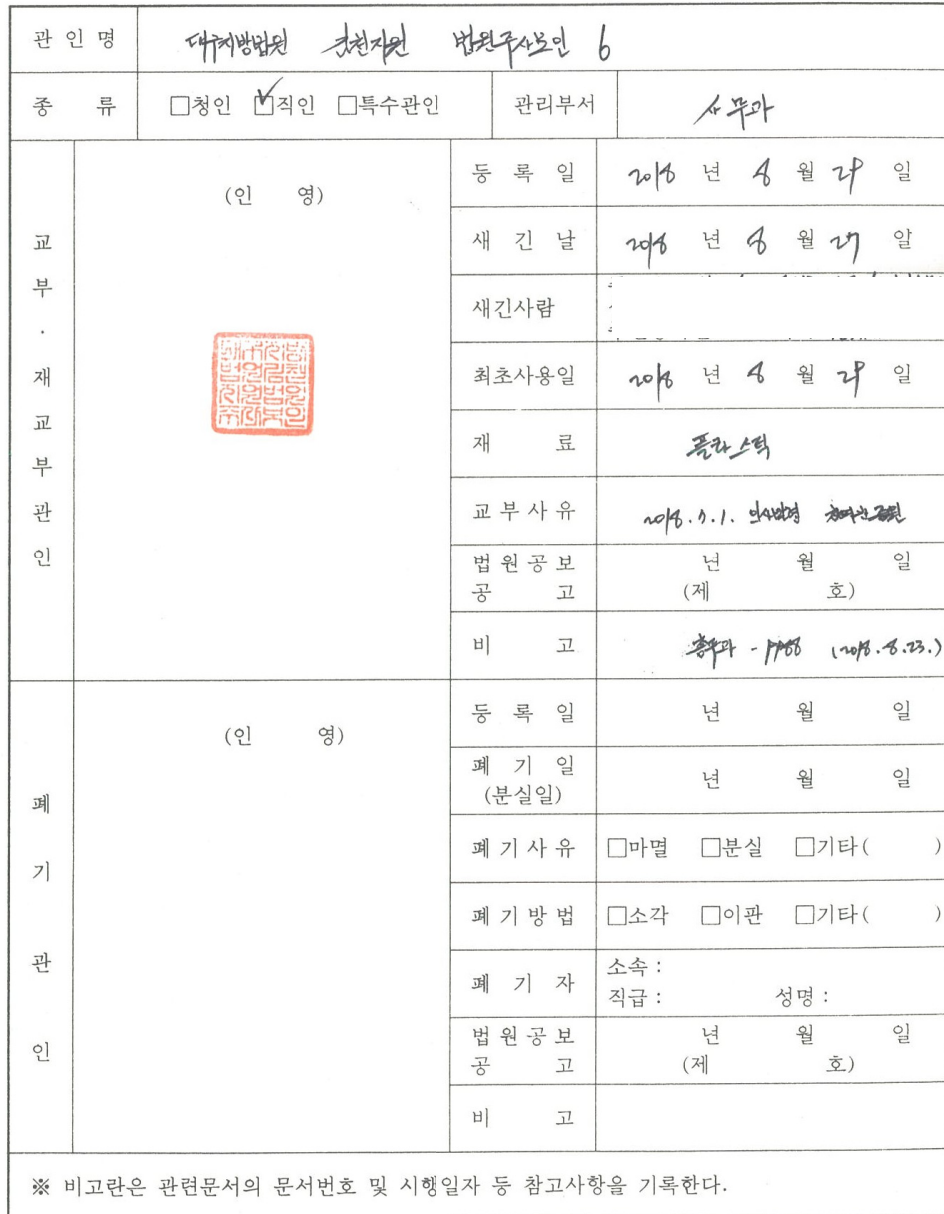 관 인 명 대구지방법원 김천지원 법원주사보인 6
종 류 □청인 ☑직인 □특수관인 관리부서 사무과
교부·재교부관인
(인 영)
등 록 일 2018 년 8 월 29 일
새 긴 날 2018 년 8 월 27 알
새긴사람
최초사용일 2018 년 8 월 29 일
재 료 플라스틱
교부사유 2018.7.1. 인사발령
법원공보 공 고 년 월 일
(제 호)
비 고 총무과 - (2018.8.23.)
폐기관인
(인 영)
등 록 일 년 월 일
폐 기 일 (분실일) 년 월 일
폐기사유 □마멸 □분실 □기타( )
폐기방법 □소각 □이관 □기타( )
폐 기 자 소속 :
직급 : 성명 :
법원공보 공 고 년 월 일
(제 호)
비 고
※ 비고란은 관련문서의 문서번호 및 시행일자 등 참고사항을 기록한다.